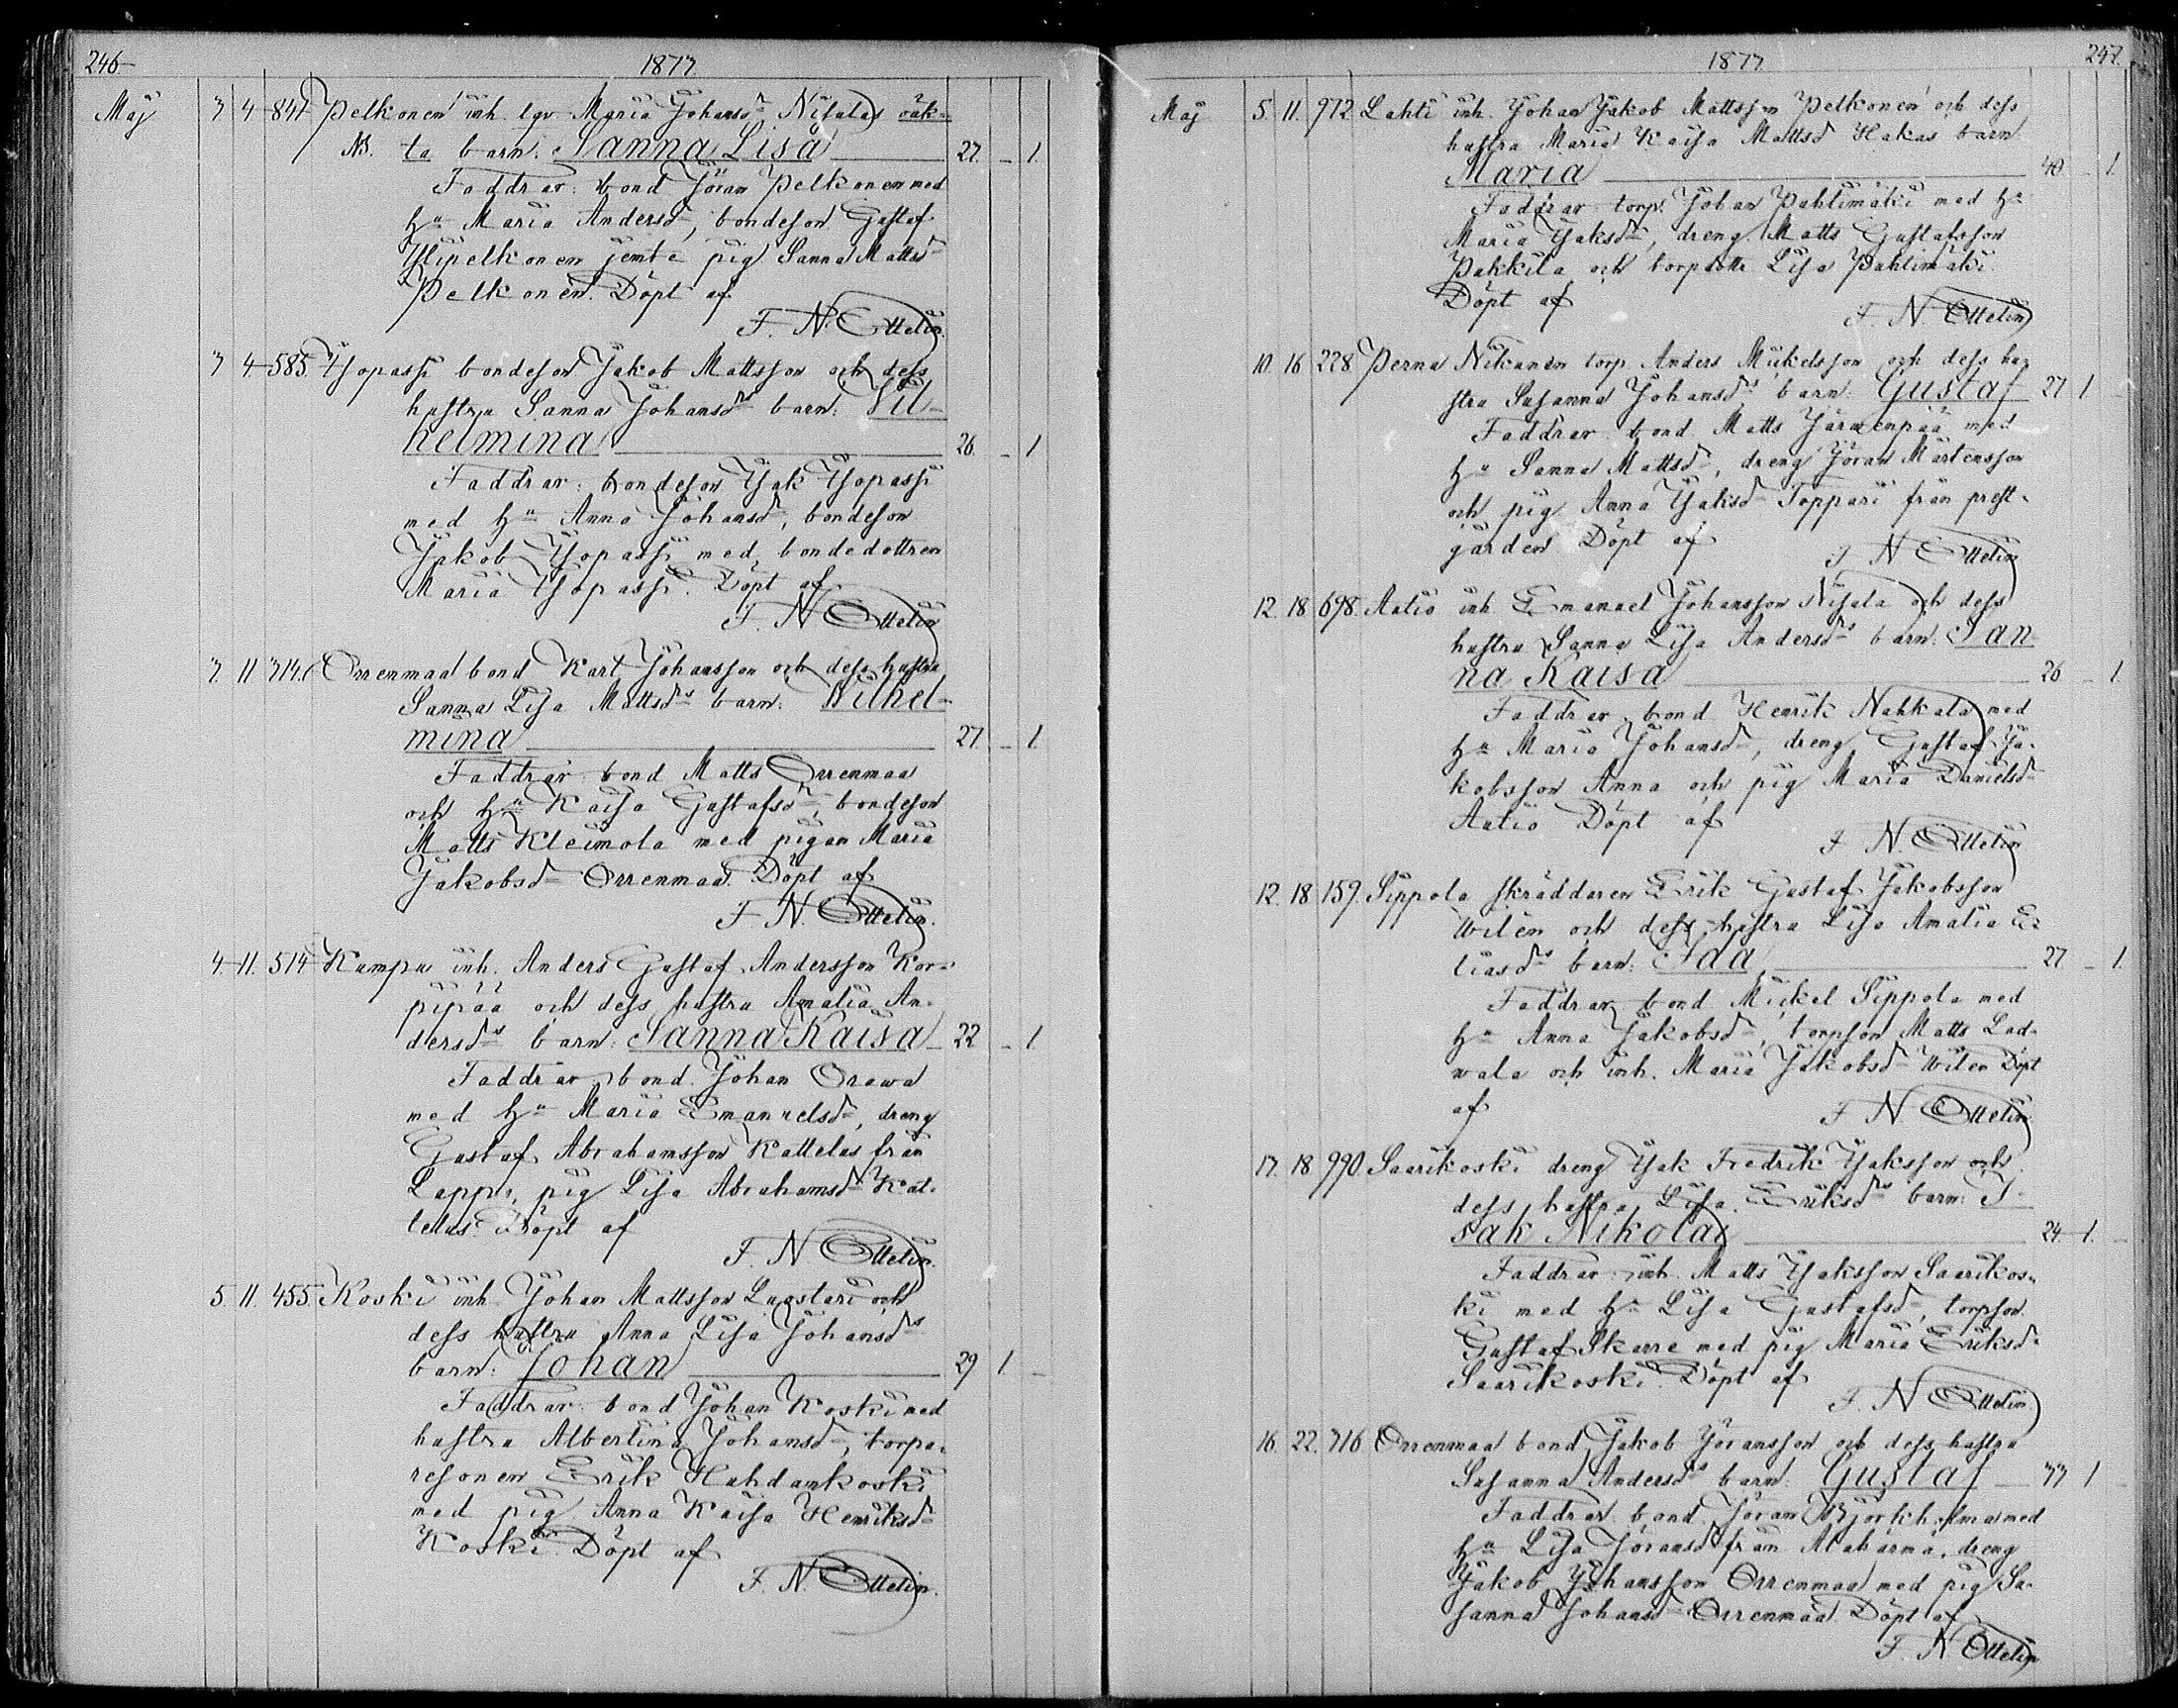 246.
1877.
Maj 3 4 841 Pelkonen inh. Maria Johansd:r Nisala oäk-
ta barn: Sanna Lisa 27. - 1.
Faddrar: bond Jöran Pelkonen med
h:u Maria Andersd:r, bondeson Gustaf
Ylipelkonen jemte pig Sanna Mattsd:r
Pelkonen. Döpt af
F. N. Ottelin.
3 4 585. Yopassi bondeson Jakob Mattsson och dess
hustru Sanna Johansd:rs barn: Vil-
helmina 26. - 1
Faddrar: bondeson Isak Yopassi
med h:u Anna Johansd:r, bondeson
Jakob Yopassi med bondedottren
Maria Yopassi. Döpt af
F. N. Ottelin
3. 11 314. Orrenmaa bond Karl Johansson och dess hustru
Sanna Lisa Mattsd:rs barn: Wilhel-
mina 27. - 1
Faddrar: bond Matts Orrenmaa
och h:u Kaisa Gustafsd:r, bondeson
Matts Kleimola med pigan Maria
Jakobsd:r Orrenmaa. Döpt af
F. N. Ottelin.
4. 11. 514 Kampu inh. Anders Gustaf Andersson Kor-
pipää och dess hustru Amalia An-
dersd:rs barn: Sanna Kaisa 22 - 1.
Faddrar: bond. Johan Orawa
med h:u Maria Emanuelsd:r, dreng
Gustaf Abrahamsson Kattelus från
Lappo, pig Lisa Abrahamsd:r Kat-
telus. Döpt af
F. N. Ottelin.
5. 11. 455. Koski inh Johan Mattsson Luostari och
dess hustru Anna Lisa Johansd:rs
barn: Johan 29 1. -
Faddrar: bond Johan Koski med
hustru Albertina Johansd:r, torpa-
resonen Erik Hahdankoski
med pig Anna Kaisa Henriksd:r
Koski. Döpt af
F. N. Ottelin.
1877.
247.
Maj 5. 11. 972 Lahti inh. Johan Jakob Mattsson Pelkonen och dess
hustru Maria Kaisa Mattsd Hakas barn
Maria 40 - 1.
Faddrar torp. Johan Pahtimäki med h:u
Maria Isaksd:r, dreng Matts Gustafsson
Pakkila och torpdottr Lisa Pahtimäki.
Döpt af
F. N. Ottelin
10. 16 228 Perna Nikanen torp Anders Mickelsson och dess hu-
stru Susanna Johansd:rs barn: Gustaf 27 1 -
Faddrar bond Matts Järwenpää med
h:u Sanna Mattsd:r, dreng Jöran Mårtensson
och pig Anna Isaksd:r Toppari från prest-
gården Döpt af
F N Ottelin
12. 18 698. Aalio inh Emanuel Johansson Nisula och dess
hustru Sanna Lisa Andersd:rs barn: San-
na Kaisa 26 - 1.
Faddrar bond Henrik Nahkala med
h:u Maria Johansd:r, dreng Gustaf Ja-
kobsson Anna och pig Maria Danielsd:r
Aalio Döpt af
F N. Ottelin
12. 18 159. Sippola skräddaren Erik Gustaf Jakobsson
Wilen och dess hustru Lisa Amalia E-
liasd:rs barn: Ida 27. - 1.
Faddrar bond Mickel Sippola med
h:u Anna Jakobsd:r, torpson Matts Lad-
wala och inh. Maria Jakobsd:r Wilen Döpt
af
F N Ottelin.
17. 18 990. Saarikoski dreng Isak Fredrik Isaksson och
dess hustru Lisa Eriksd:rs barn: I-
sak Nikolai 24. 1. -
Faddrar: inh. Matts Isaksson Saarikos-
ki med h:u Lisa Gustafsd:r, torpson
Gustaf Skarre med pig Maria Eriksd:r
Saarikoski. Döpt af
F. N Ottelin
16. 22. 316 Orrenmaa bond Jakob Jöransson och dess hustru
Susanna Andersd:rs barn: Gustaf 33 1 -
Faddrar bond. Jöran Björkholma med
h:u Lisa Jöransd:r från Alahärmä, dreng
Jakob Johansson Orrenmaa med pig Su-
sanna Johansd:r Orrenmaa Döpt af
F. N Ottelin